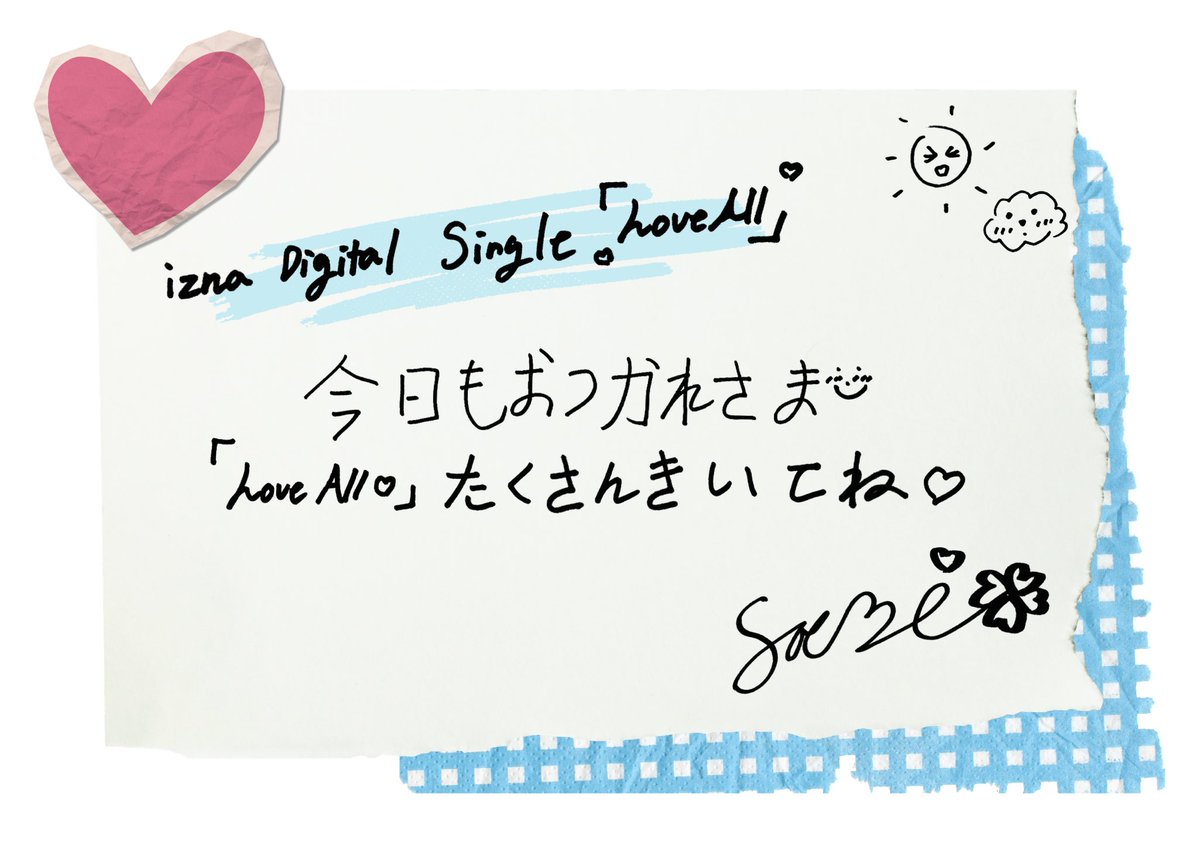 izna Digital Single「Love All」
今日もおつかれさま
「Love All♡」たくさんきいてね♡